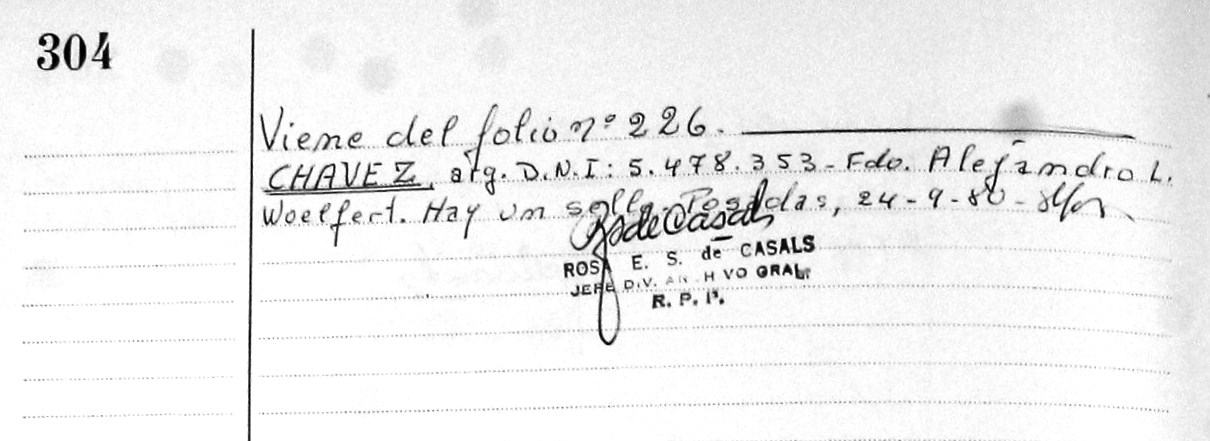 304
Viene del folio nº 226.
CHAVEZ, arg. D.N.I: 5.478.353 - Fdo. Alejandro L.
Woelfert. Hay un sello. Posadas, 24-9-80 -
R. de Casals
ROSA E. S. de CASALS
JEFE DIV. ARCHIVO GRAL.
R. P. P.